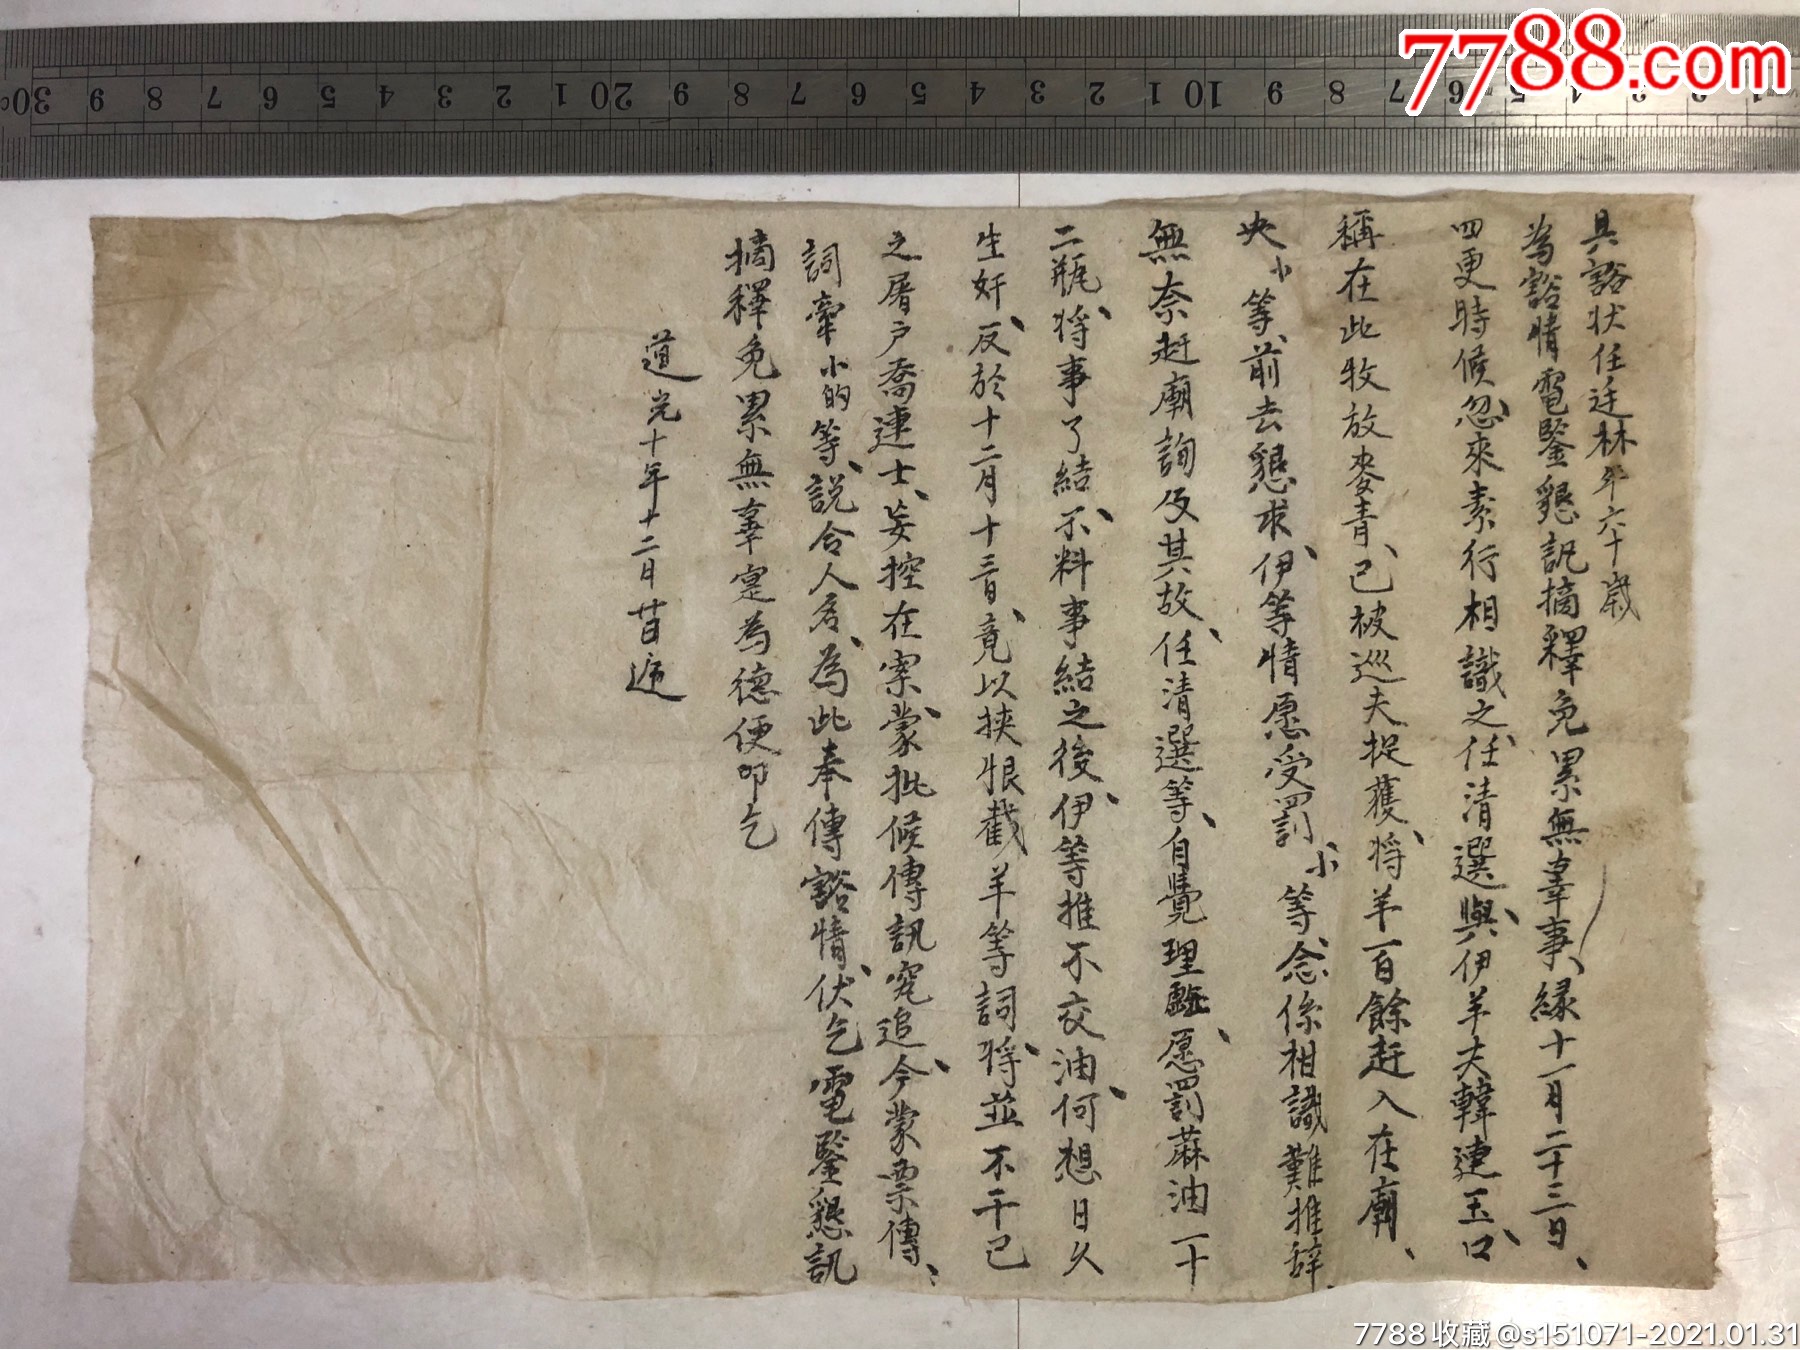 7788.com
具豁状任廷林年六十歲
為豁情電鑒懇訊摘釋免累無辜事、緣十一月二十三日、
四更時候、忽來素行相識之任清選、與伊羊夫韓連玉、口
稱在此牧放麥青、已被巡夫捉獲、将羊一百餘赶入在廟、
央小等、前去懇求、伊等情愿受罰、小等、念係相識難推辞
無奈赶廟詢及其故、任清選等、自覺理虧、愿罰蔴油一十
二瓶、将事了結、不料事結之後、伊等推不交油、何想日久
生奸、反於十二月十三日、竟以挟恨截羊等詞、将並不干已
之屠户喬連士、妄控在案、蒙批候傳訊究追、今蒙票傳、
詞牽小的等、説合人名、為此奉傳豁情、伏乞電鑒懇訊
摘釋免累無辜寔為德便叩乞
道光十年十二月廿日遞
7788收藏@s151071-2021.01.31